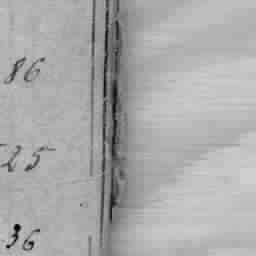 86
25
36